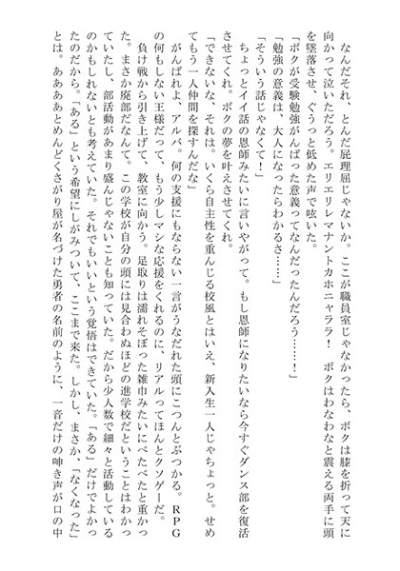 なんだそれ、とんだ屁理屈じゃないか。ここが職員室じゃなかったら、ボクは膝を折って天に
向かって泣いただろう。エリエリレマナントカホニャララ！　ボクはわなわなと震える両手に頭
を墜落させ、ぐうっと低めた声で呟いた。
「ボクが受験勉強がんばった意義ってなんだったんだろう……！」
「勉強の意義は、大人になったらわかるさ……」
「そういう話じゃなくて！」
ちょっとイイ話の恩師みたいに言いやがって。もし恩師になりたいなら今すぐダンス部を復活
させてくれ。ボクの夢を叶えさせてくれ。
「できないな、それは。いくら自主性を重んじる校風とはいえ、新入生一人じゃちょっと。せめ
てもう一人仲間を探すんだな」
がんばれよ、アルバ。何の支援にもならない一言がうなだれた頭にこつんとぶつかる。ＲＰＧ
の何もしない王様だって、もう少しマシな応援をくれるのに、リアルってほんとクソゲーだ。
負け戦から引き上げて、教室に向かう。足取りは濡れそぼった雑巾みたいにべたべたと重かっ
た。まさか廃部だなんて。この学校が自分の頭には見合わぬほどの進学校だということはわかっ
ていたし、部活動があまり盛んじゃないことも知っていた。だから少人数で細々と活動している
のかもしれないとも考えていた。それでもいいという覚悟はできていた。「ある」だけでよかっ
たのだから。「ある」という希望にしがみついて、ここまで来た。しかし、まさか、「なくなった」
とは。ああああとめんどくさがり屋が名づけた勇者の名前のように、一音だけの呻き声が口の中